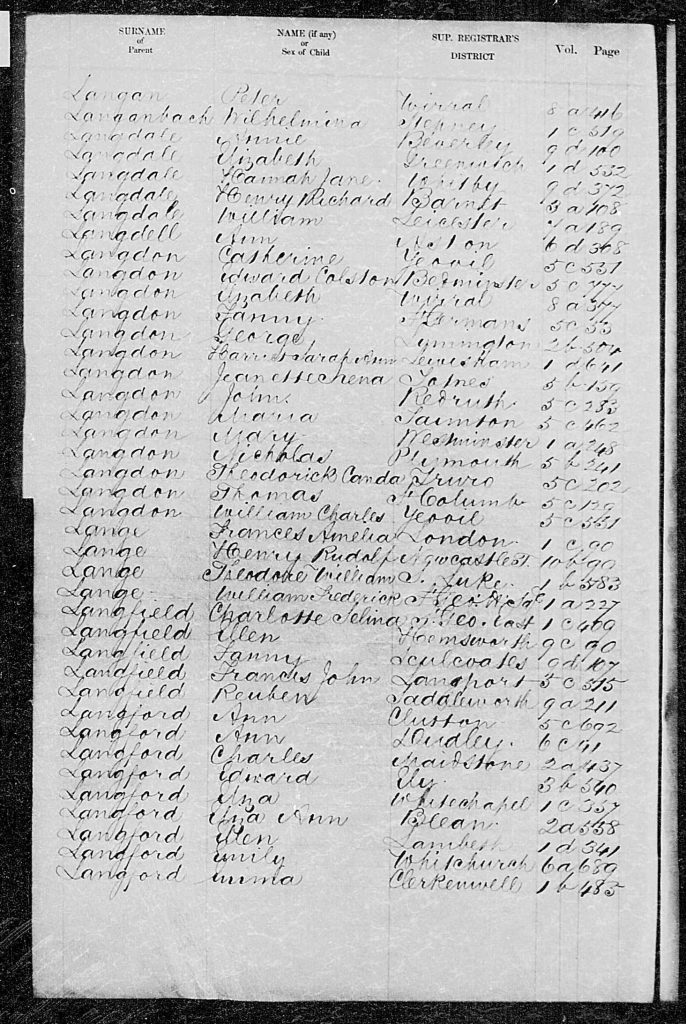 SURNAME of Parent NAME (if any) or Sex of Child SUP. REGISTRAR'S DISTRICT Vol. Page
Langan Peter Wirral 8 a 416
Langanbach Wilhelmina Stepney 1 c 519
Langdale Annie Beverley 9 d 100
Langdale Elizabeth Greenwich 1 d 532
Langdale Hannah Jane. Whitby 9 d 372
Langdale Henry Richard Barnet 3 a 108
Langdale William Leicester 7 a 189
Langdell Ann Aston 6 d 368
Langdon Catherine Yeovil 5 c 531
Langdon Edward Colston Bedminster 5 c 777
Langdon Elizabeth Wirral 8 a 377
Langdon Fanny. St Germans 5 c 53
Langdon George Lymington 2 b 504
Langdon Harriet Sarah Ann Lewisham 1 d 641
Langdon Jeanette Totnes 5 b 159
Langdon John. Redruth 5 c 283
Langdon Maria Taunton 5 c 462
Langdon Mary Westminster 1 a 248
Langdon Nicholas Plymouth 5 b 241
Langdon Theodorick Canda Truro 5 c 202
Langdon Thomas St Columb 5 c 129
Langdon William Charles Yeovil 5 c 551
Lange Frances Amelia London 1 c 90
Lange Henry Rudolf Newcastle T. 10 b 90
Lange Theodore William S. Luke. 1 b 583
Lange William Frederick St Geo. H. Sq 1 a 227
Langfield Charlotte Selina St Geo. East 1 c 469
Langfield Ellen Hemsworth 9 c 90
Langfield Fanny Sculcoates 9 d 107
Langfield Francis John Langport 5 c 515
Langfield Reuben Saddleworth 9 a 211
Langford Ann Clutton 5 c 692
Langford Ann Dudley. 6 c 41
Langford Charles Maidstone 2 a 437
Langford Edward Ely. 3 b 540
Langford Eliza Whitechapel 1 c 337
Langford Eliza Ann Blean. 2 a 558
Langford Ellen Lambeth 1 d 341
Langford Emily Whitchurch 6 a 689
Langford Emma Clerkenwell 1 b 485